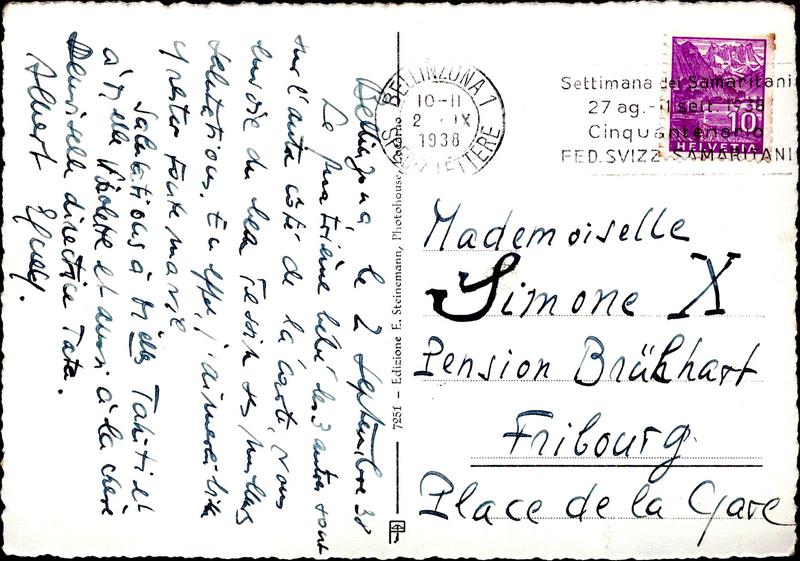 Bellinzona, le 2 Septembre 38
La quatrième bébé des 3 autres sont
sur l'autre côté de la carte, vous
envoie du beau Tessin ses meilleurs
salutations. En effet, j'aimerai
rester toute ma vie
Salutations à Mlle Tahiti et
à Mlle Violette et aussi à la chère
Demoiselle directrice Tata.
Albert
7251 – Edizione E. Steinemann, Photohouse, Locarno
BELLINZONA 1
10-11
2 · IX
1938
LETTERE
Settimana dei Samaritani
27 ag. - 11 sett. 1938
Cinquantenario
FED. SVIZZ. SAMARITANI
10
HELVETIA
Mademoiselle
Simone X
Pension Brükhart
Fribourg
Place de la Gare